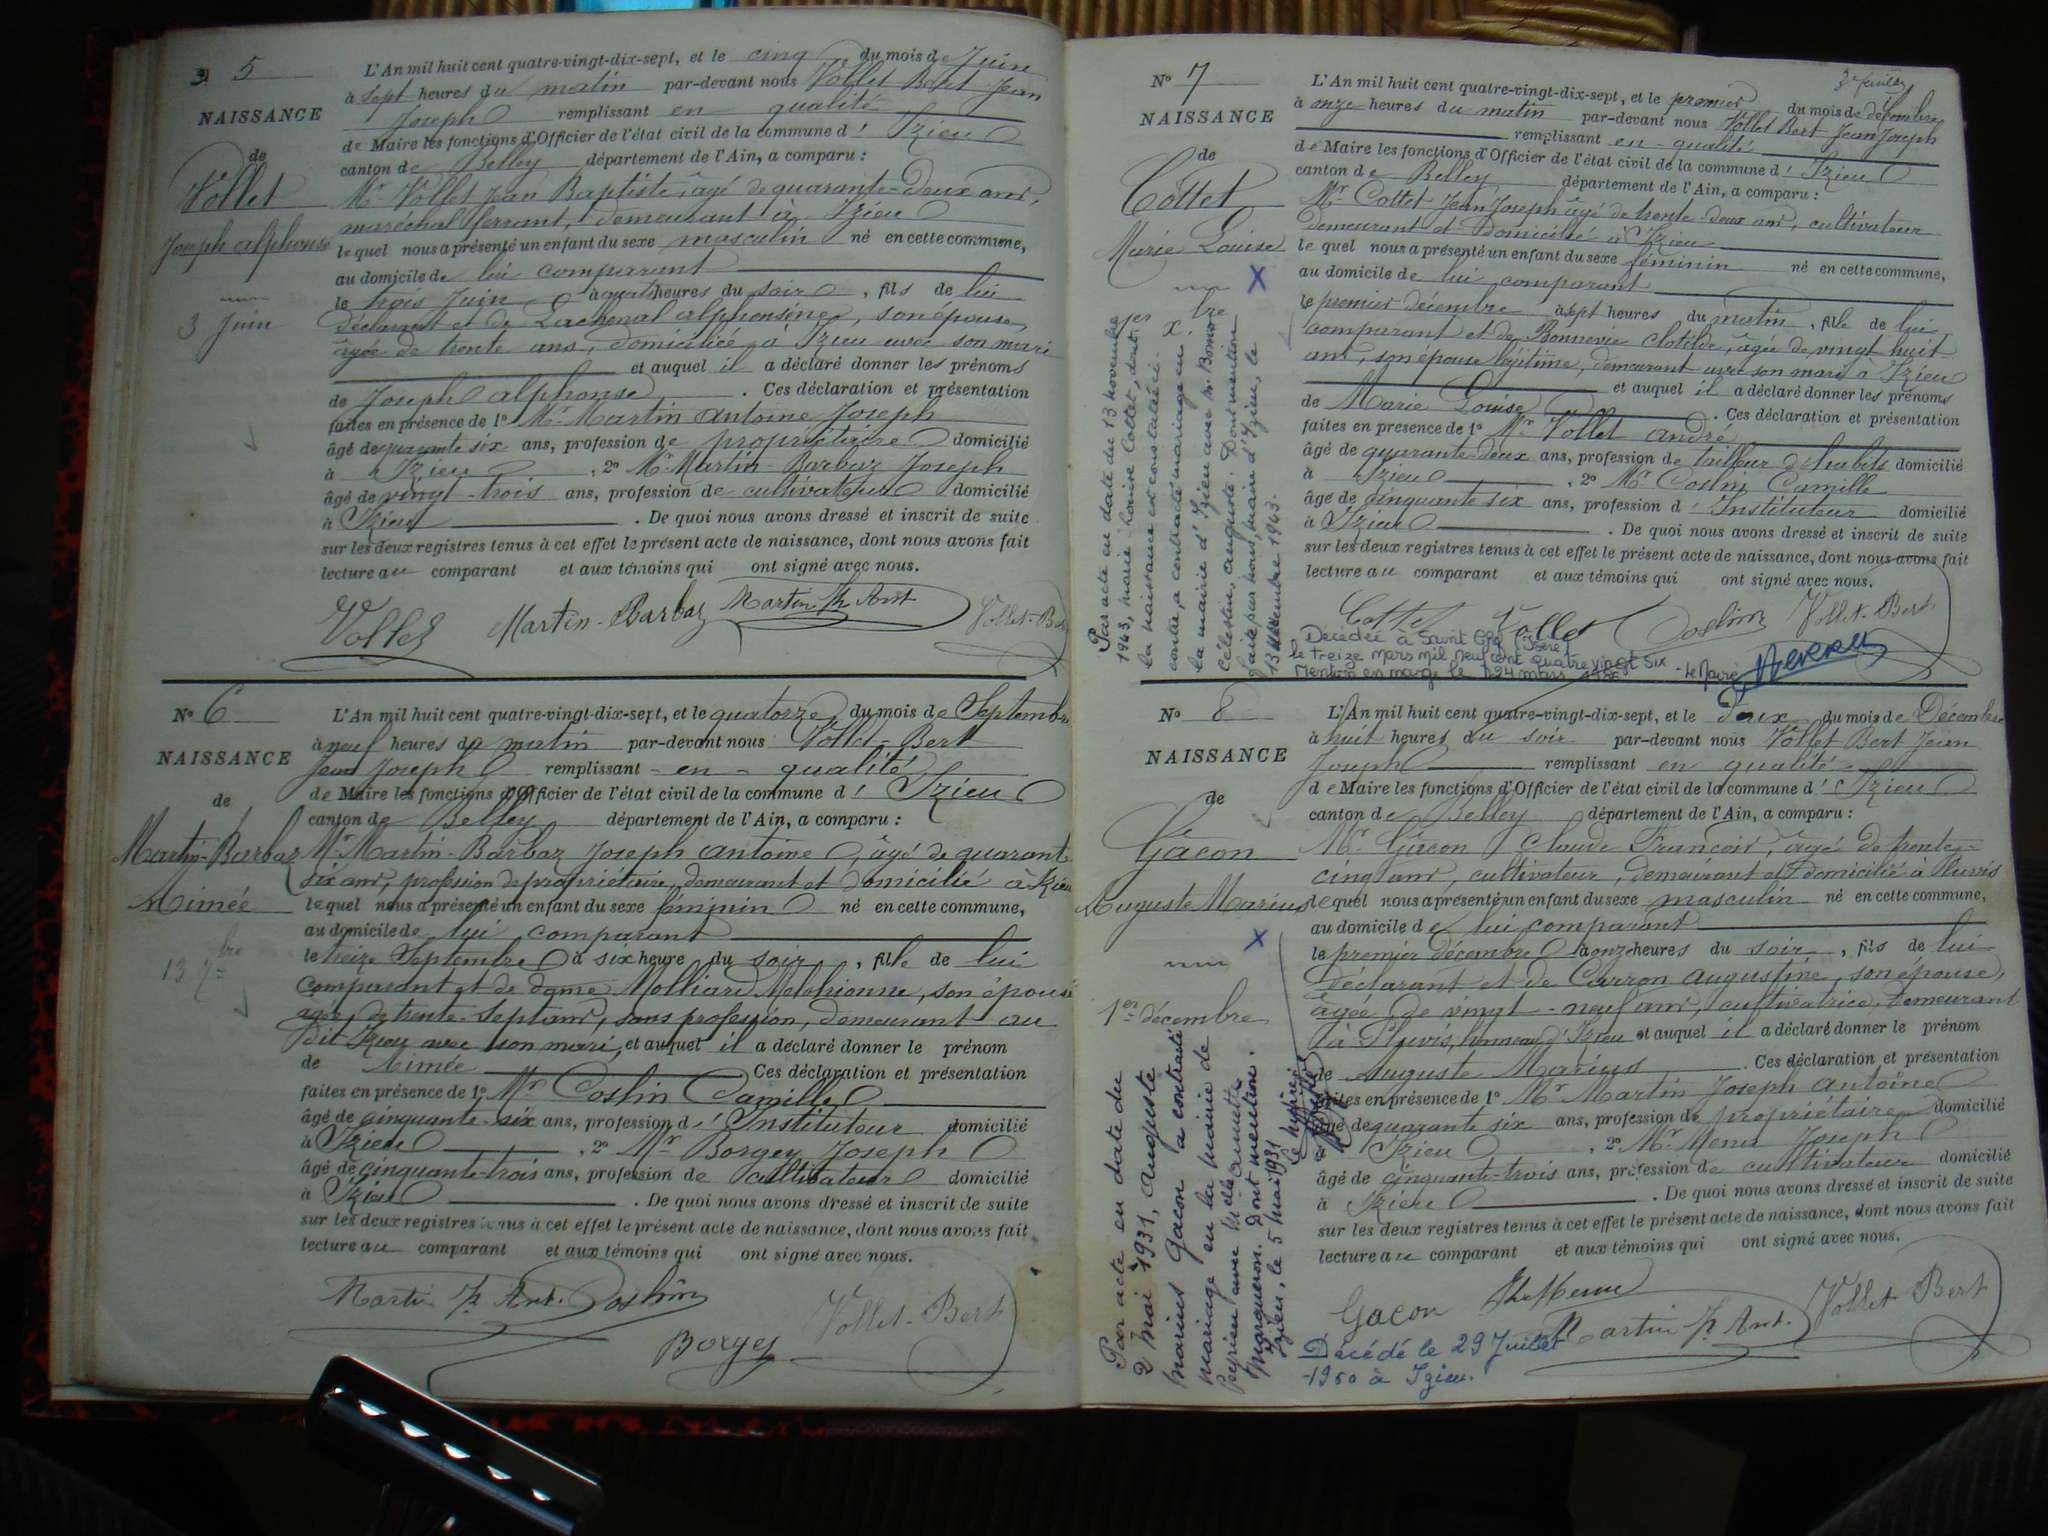 5
NAISSANCE
de
Vollet
Joseph alphonse
3 Juin
L'An mil huit cent quatre-vingt-dix-sept, et le cinq du mois de Juin
à sept heures du matin par-devant nous Vollet Bert Jean
Joseph remplissant en qualité
de Maire les fonctions d'Officier de l'état civil de la commune d' Izieu
canton de Belley département de l'Ain, a comparu :
Mr Vollet Jean Baptiste, âgé de quarante-deux ans,
maréchal ferrant, demeurant à Izieu
lequel nous a présenté un enfant du sexe masculin né en cette commune,
au domicile de lui comparant
le trois Juin à heures du soir, fils de lui
déclarant et de Lachenal alphonsine, son épouse,
âgée de trente ans, domiciliée à Izieu avec son mari
et auquel il a déclaré donner les prénoms
de Joseph alphonse. Ces déclaration et présentation
faites en présence de 1o Mr Martin Antoine Joseph
âgé de quarante six ans, profession de propriétaire domicilié
à Izieu, 2o Mr Martin-Barbaz Joseph
âgé de vingt-trois ans, profession de cultivateur domicilié
à Izieu. De quoi nous avons dressé et inscrit de suite
sur les deux registres tenus à cet effet le présent acte de naissance, dont nous avons fait
lecture au comparant et aux témoins qui ont signé avec nous.
Vollet Martin-Barbaz Martin Jh Ant Vollet-Bert
No 6
NAISSANCE
de
Martin-Barbaz
Aimée
13 7bre
L'An mil huit cent quatre-vingt-dix-sept, et le quatorze du mois de Septembre
à neuf heures du matin par-devant nous Vollet-Bert
Jean Joseph remplissant - en - qualité
de Maire les fonctions d'Officier de l'état civil de la commune d' Izieu
canton de Belley département de l'Ain, a comparu :
Mr Martin-Barbaz Joseph antoine, âgé de quarante
six ans, profession de propriétaire, demeurant et domicilié à Izieu
lequel nous a présenté un enfant du sexe féminin né en cette commune,
au domicile de lui comparant
le treize Septembre à six heure du soir, fille de lui
comparant et de dame Molliard Melchionne, son épouse
âgée de trente-sept ans, sans profession, demeurant au
dit Izieu avec son mari, et auquel il a déclaré donner le prénom
de Aimée Ces déclaration et présentation
faites en présence de 1o Mr Coslin Camille
âgé de cinquante-six ans, profession d'Instituteur domicilié
à Izieu, 2o Mr Borgey Joseph
âgé de cinquante-trois ans, profession de cultivateur domicilié
à Izieu. De quoi nous avons dressé et inscrit de suite
sur les deux registres tenus à cet effet le présent acte de naissance, dont nous avons fait
lecture au comparant et aux témoins qui ont signé avec nous.
Martin Jh Ant. Coslin Borgey Vollet-Bert
3e feuillet
No 7
NAISSANCE
de
Cottet
Marie Louise
1er Xbre
L'An mil huit cent quatre-vingt-dix-sept, et le premier du mois de décembre
à onze heures du matin par-devant nous Vollet Bert Jean Joseph
remplissant en - qualité
de Maire les fonctions d'Officier de l'état civil de la commune d' Izieu
canton de Belley département de l'Ain, a comparu :
Mr Cottet Jean Joseph âgé de trente-deux ans, cultivateur
demeurant et domicilié à Izieu
lequel nous a présenté un enfant du sexe féminin né en cette commune,
au domicile de lui comparant
le premier décembre à sept heures du matin, fille de lui
comparant et de Bonnevie Clotilde, âgée de vingt huit
ans, son épouse légitime, demeurant avec son mari à Izieu
et auquel il a déclaré donner les prénoms
de Marie Louise. Ces déclaration et présentation
faites en présence de 1o Mr Vollet André
âgé de quarante-deux ans, profession de tailleur d'habits domicilié
à Izieu, 2o Mr Coslin Camille
âgé de cinquante six ans, profession d'Instituteur domicilié
à Izieu. De quoi nous avons dressé et inscrit de suite
sur les deux registres tenus à cet effet le présent acte de naissance, dont nous avons fait
lecture au comparant et aux témoins qui ont signé avec nous.
Cottet Vollet Coslin Vollet-Bert
Par acte en date du 13 novembre
1943, marie-louise Cottet, dont
la naissance est constatée ci-
contre, a contracté mariage en
la mairie d'Izieu avec Mr
Célestin, auguste. Dont mention
faite par nous, maire d'Izieu, le
13 novembre 1943.
Décédée à Saint (Isère)
le treize mars mil neuf cent quatre vingt six
Mention en marge le 24 mars 1986 - le Maire
No 8
NAISSANCE
de
Gacon
Auguste Marius
1er décembre
L'An mil huit cent quatre-vingt-dix-sept, et le deux du mois de Décembre
à huit heures du soir par-devant nous Vollet Bert Jean
Joseph remplissant en qualité
de Maire les fonctions d'Officier de l'état civil de la commune d' Izieu
canton de Belley département de l'Ain, a comparu :
Mr Gacon Claude François, âgé de trente-
cinq ans, cultivateur, demeurant et domicilié à
lequel nous a présenté un enfant du sexe masculin né en cette commune,
au domicile de lui comparant
le premier décembre à onze heures du soir, fils de lui
déclarant et de Carron augustine, son épouse,
âgée de vingt-neuf ans, cultivatrice, demeurant
à hameau d'Izieu et auquel il a déclaré donner le prénom
de Auguste Marius. Ces déclaration et présentation
faites en présence de 1o Mr Martin Joseph antoine
âgé de quarante six ans, profession de propriétaire domicilié
à Izieu, 2o Mr Joseph
âgé de cinquante-trois ans, profession de cultivateur domicilié
à Izieu. De quoi nous avons dressé et inscrit de suite
sur les deux registres tenus à cet effet le présent acte de naissance, dont nous avons fait
lecture au comparant et aux témoins qui ont signé avec nous.
Gacon Martin Jh Ant. Vollet-Bert
Par acte en date du
2 mai 1931, Auguste
Marius Gacon a contracté
mariage en la mairie de
avec Melle annette
Dont mention.
Izieu, le 5 mai 1931
Décédé le 29 Juillet
1950 à Izieu.